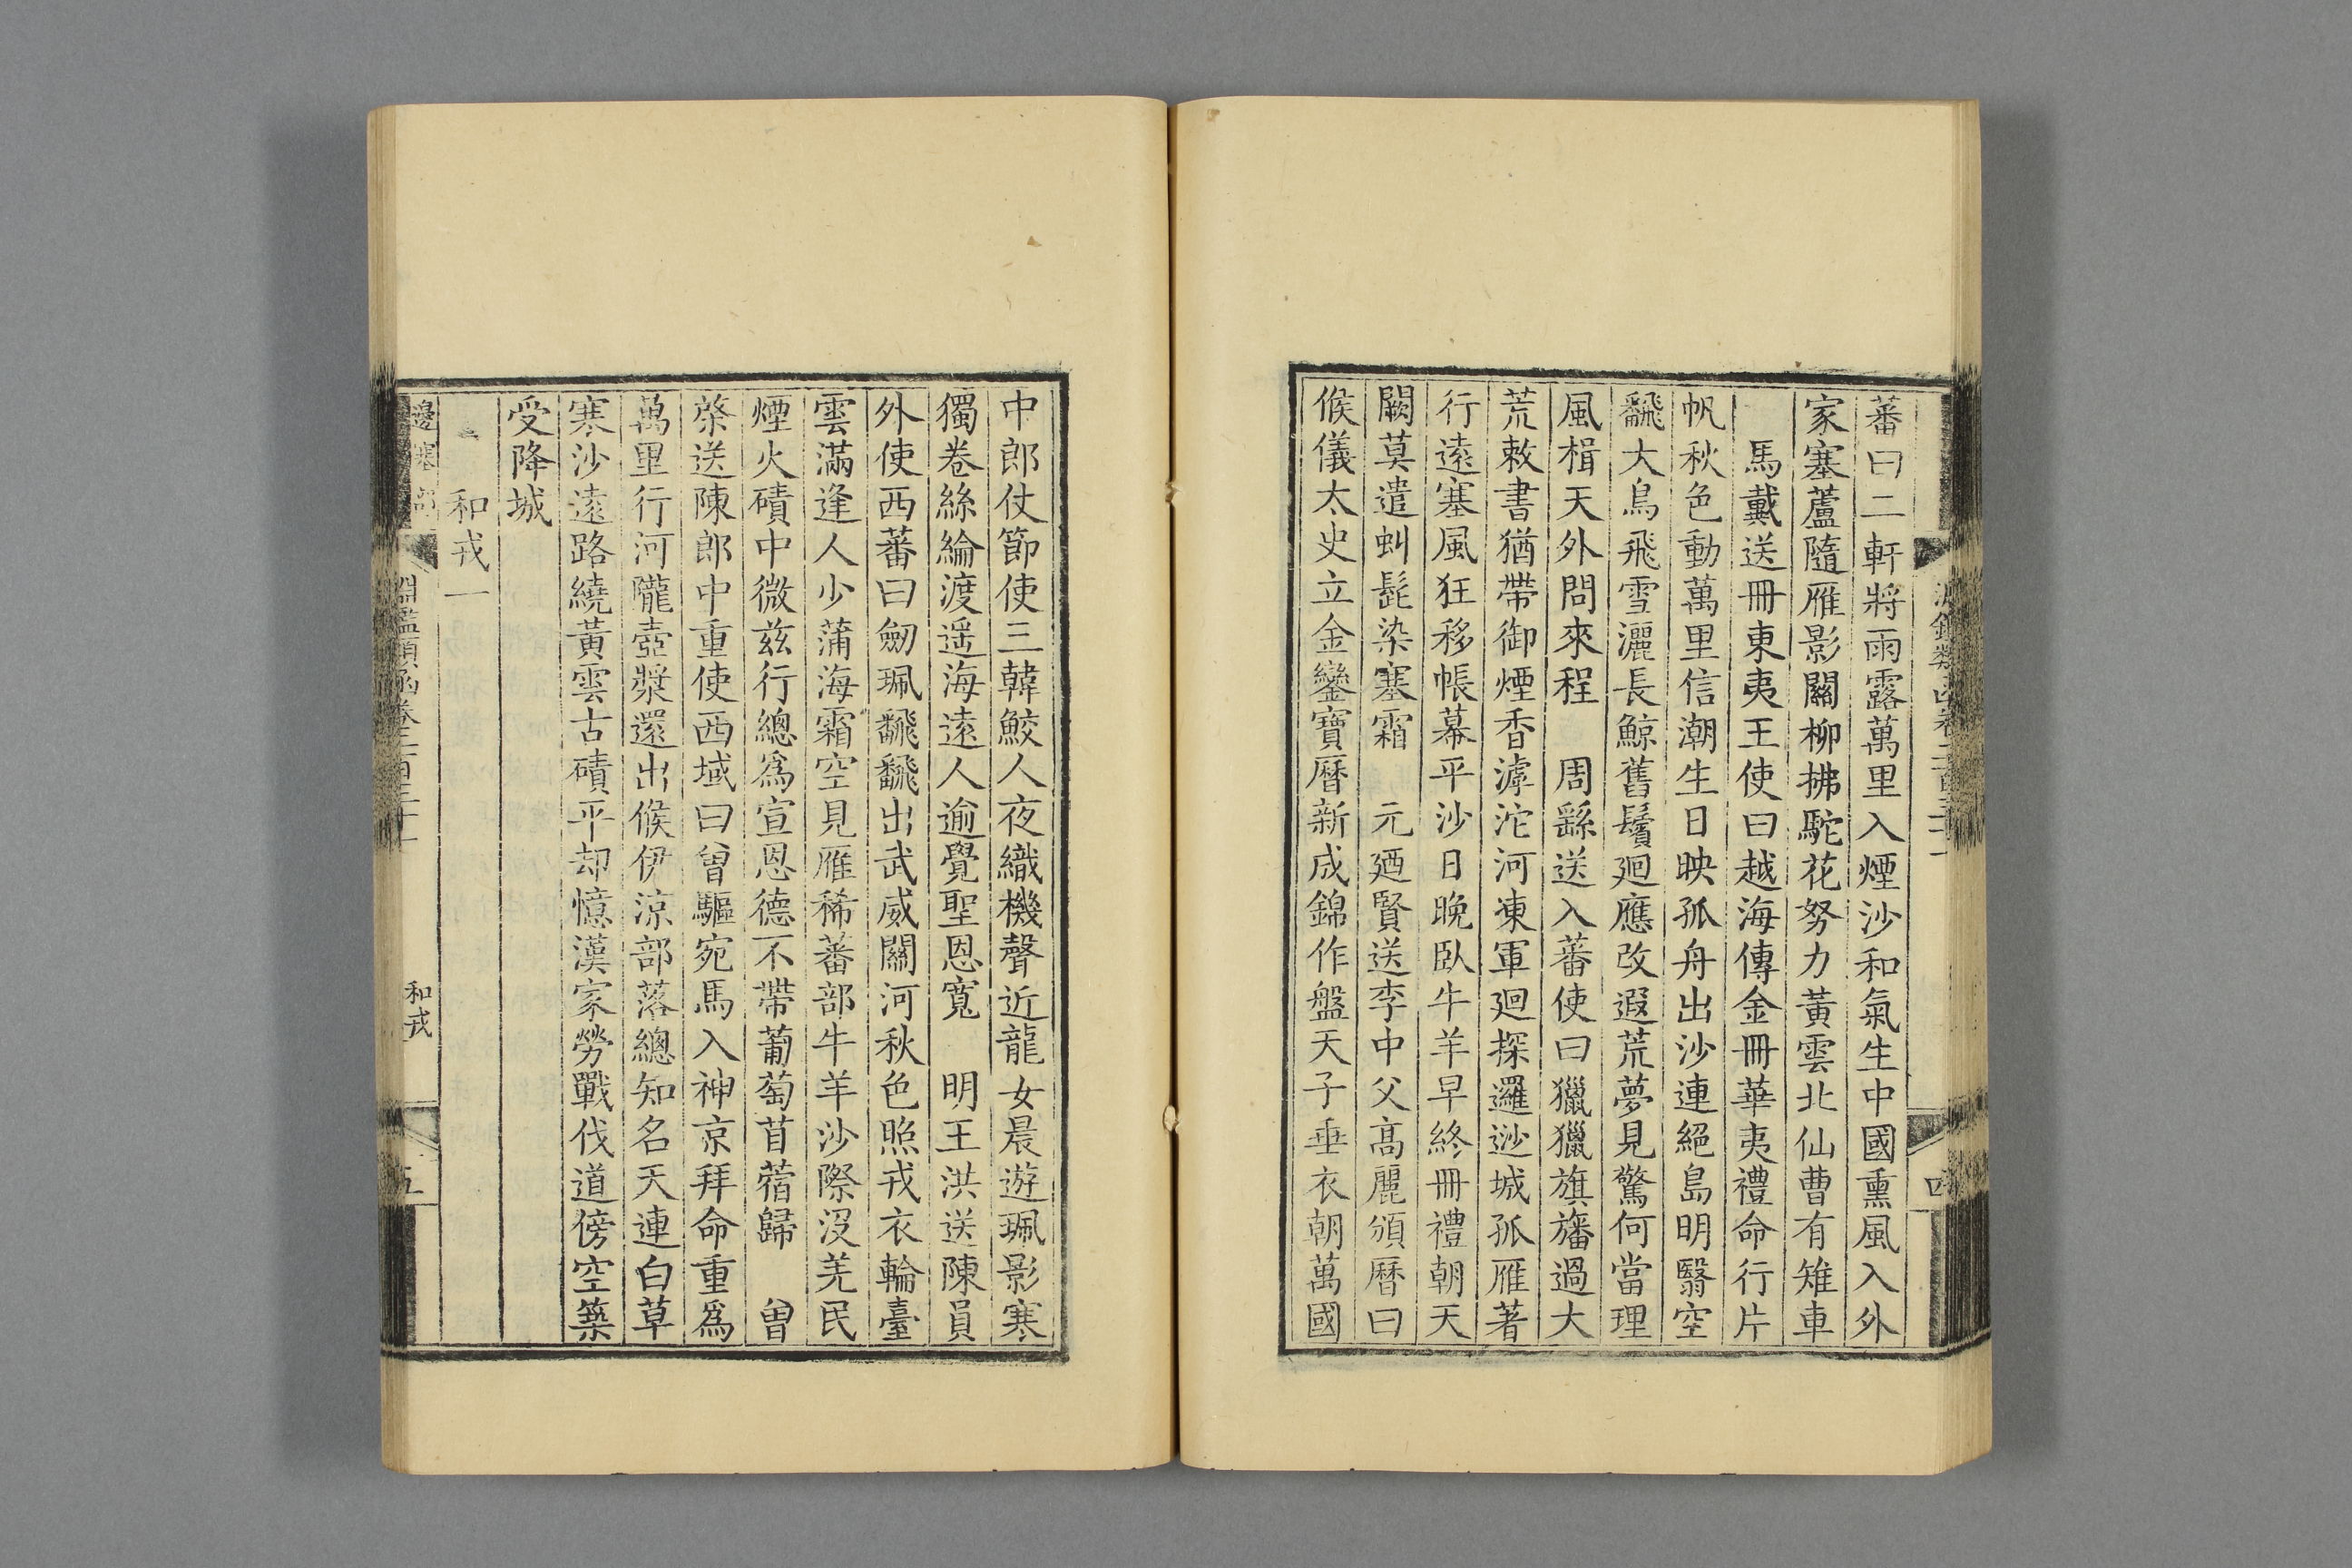 蕃曰二軒將雨露萬里入煙沙和氣生中國熏風入外
家塞蘆隨雁影關柳拂駝花努力黃雲北仙曹有雉車
馬戴送冊東夷王使曰越海傳金冊華夷禮命行片
帆秋色動萬里信潮生日映孤舟出沙連絕島明翳空
翻大鳥飛雪灑長鯨舊鬢廻應改遐荒夢見驚何當理
風楫天外問來程　周繇送入蕃使曰獵獵旗旛過大
荒敕書猶帶御煙香滹沱河凍軍廻探邏逤城孤雁著
行遠塞風狂移帳幕平沙日晚臥牛羊早終冊禮朝天
闕莫遣虯髭染塞霜　元廼賢送李中父高麗頒曆曰
候儀太史立金鑾寶曆新成錦作盤天子垂衣朝萬國
中郎仗節使三韓鮫人夜織機聲近龍女晨遊珮影寒
獨卷絲綸渡遥海遠人逾覺聖恩寬　明王洪送陳員
外使西蕃曰劒珮翩翩出武威關河秋色照戎衣輪臺
雲滿逢人少蒲海霜空見雁稀蕃部牛羊沙際沒羌民
煙火磧中微兹行總爲宣恩德不帶葡萄苜蓿歸　曾
棨送陳郎中重使西域曰曾驅宛馬入神京拜命重爲
萬里行河隴壺漿還出候伊涼部落總知名天連白草
寒沙遠路繞黃雲古磧平却憶漢家勞戰伐道傍空築
受降城
和戎一
邊塞部
淵鑑類函卷二百三十一
和戎
五